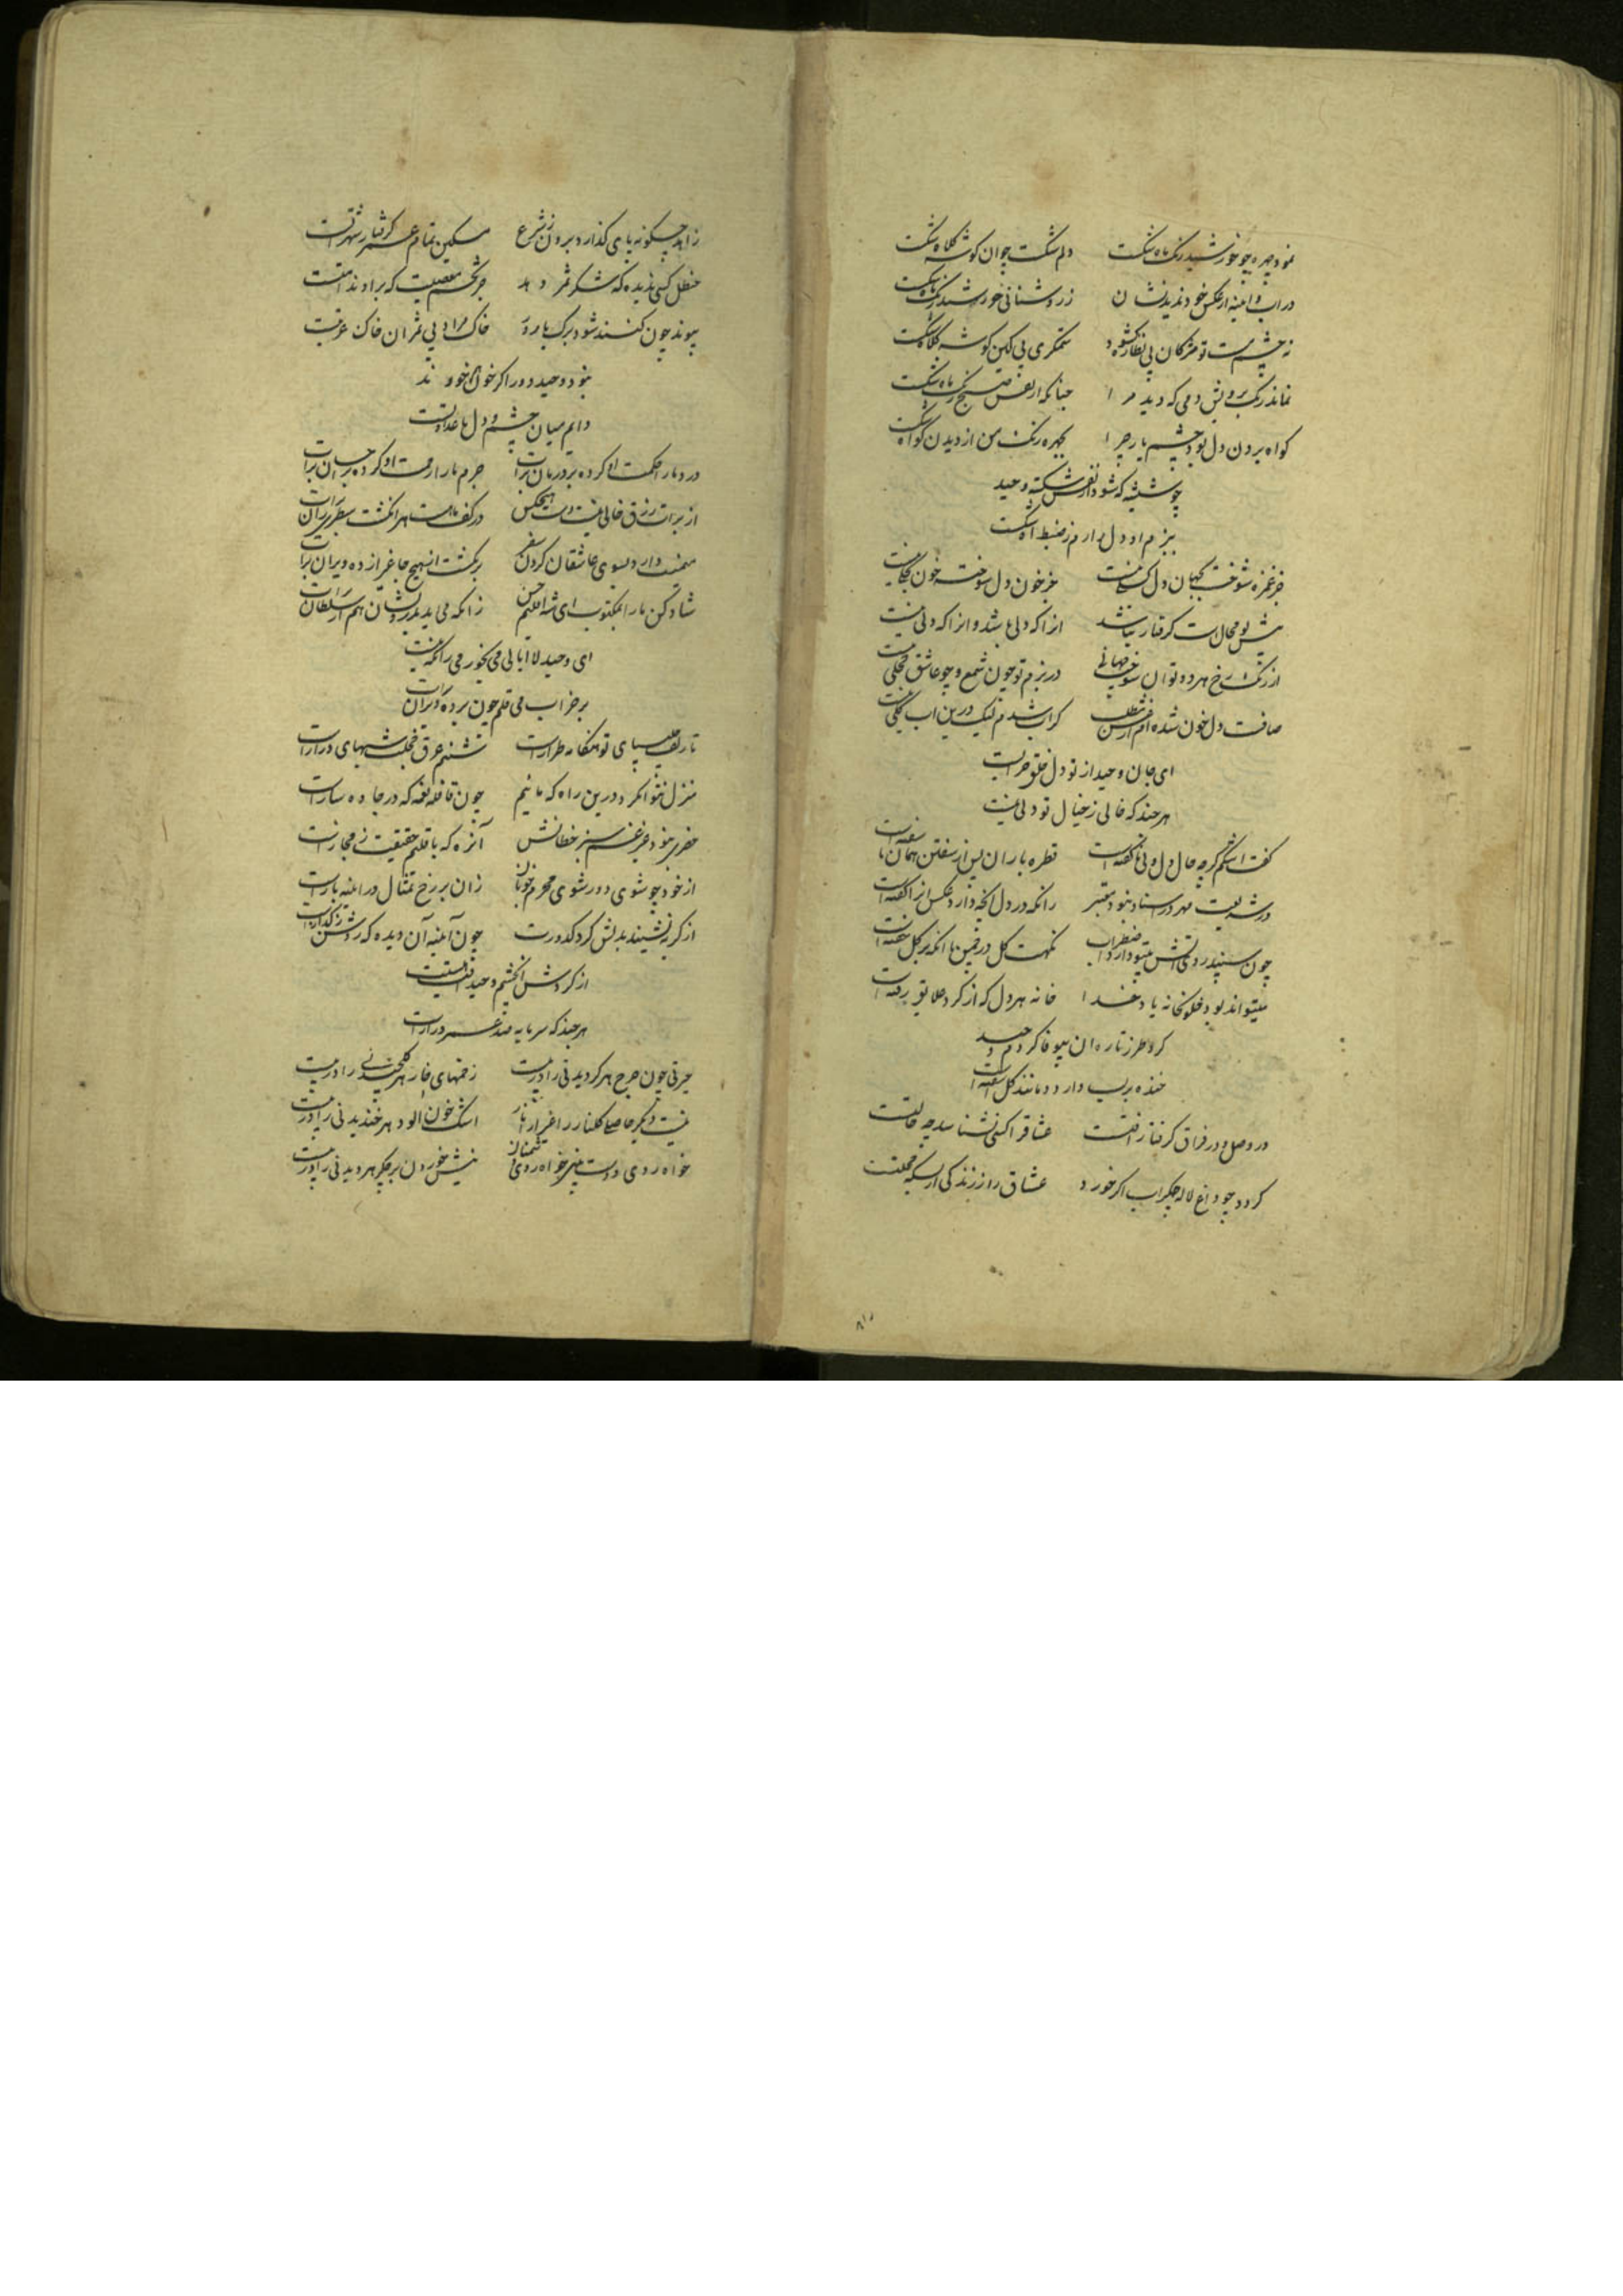 نمود چهره چو خورشید رنک ماه شکست دلم شکست چو ان کوشه کلاه شکست
در اب و اینه از عکس خود ندید نشان ز روشنائی خورشید رنک ماه شکست
ز چشم مست تو مژکان پی نظاره کشود ستمکری پی کین کوشه کلاه شکست
نماند رنک برویش دمی که دید مرا چنانکه از نفس صبح رنک ماه شکست
کواه بردن دل بود چشم یار چرا بچهره رنک من از دیدن کواه شکست
چو شیشه که شود از نفس شکسته وحید
ببزم او دل زارم ز ضبط اه شکست
جز غمزه شوخت بجهان دل کسلی نیست جز خون دل سوخته خون بحلی نیست
پیش تو محال است کرفتار نباشد انرا که دلی باشد و انرا که دلی نیست
از رنک رخ مهر و توان سوخت جهانی در بزم تو چون شمع و چو عاشق خجلی نیست
صافست دل خون شده ام از اب شدم لیک درین اب کلی نیست
ای جان وحید از تو دل خلق خرابست
هر چند که خالی ز خیال تو دلی نیست
کفت اشکم کرچه حال دل ولی ناکفته است قطره باران پس از سفتن همان ناسفته است
در شریعت مهر در اسناد نبود معتبر زانکه در دل انچه دارد عکس انرا کفته است
چون سپند روی اتش میتپد دارد اضطراب نکهت کل در چمن با انکه بر کل خفته است
میتواند بود خلوتخانه یاد خدا خانه هر دل که از کرد علایق رفته است
کرد طرز تازه ان بیوفا کردم وحید
خنده بر لب دارد و مانند کل اشفته است
در وصل و در فراق کرفتار افتست عشاق را کسی نشناسد چه حالتست
کردد چو داغ لاله جکر اب اکر خورد عشاق را ز زندکی از بسکه خجلتست
زاهد چکونه پای کذارد برون ز شرع مسکین تمام عمر کرفتار شهرتست
حنظل کسی ندیده که شکر ثمر دهد جز تخم معصیت که بر او ندامتست
پیوند چون کنند شود برک بارور خاک مراد بی ثمران خاک غربتست
نبود وحید دور اکر خون هم خورند
دایم میان چشم و دل ما عداوتست
درد ما را حکمت او کرده بر درمان برات جرم ما را رحمت او کرده بر احسان برات
از برات رزق خالی نیست دست هیچکس در کف ما هست هر انکشت سطری زان برات
منت دارد بسوی عاشقان کردن سفر برنکشت از هیچ جا غیر از ده ویران برات
شاد کن ما را بمکتوب ای شه اقلیم حسن زانکه می اید بدرویشان هم از سلطان برات
ای وحید لاابالی می بخور می زانکه نیست
بر خراب می قلم چون بر ده ویران برات
تا زلف سیاه تو بهنکامه طرازست شبنم عرق خجلت شبهای درازست
منزل نتوان کرد درین راه که مائیم چون قافله نغمه که در جاده سازست
خضری نبود غیر غم سبز خطانش آنرا که باقلیم حقیقت ز مجازست
از خود چو شوی دور شوی محرم خوبان زان بر رخ تمثال در اینه بازست
از کریه نشیند بدلش کرد کدورت چون آینه آن دیده که روشن ز کدازست
از کردش ان چشم وحید افتیت
هر چند که سرمایه صد عمر درازست
حیرتی چون چرخ هر کردیدنی را در پیست زخمهای خار هر کلچیدنی را در پیست
نیست دیکر حاصل کلنار را غیر از نار اشک خون الود هر خندیدنی را در پیست
خواه روی دوست بین خواه روی دشمنان نیش خوردن بر جکر هر دیدنی را در پیست